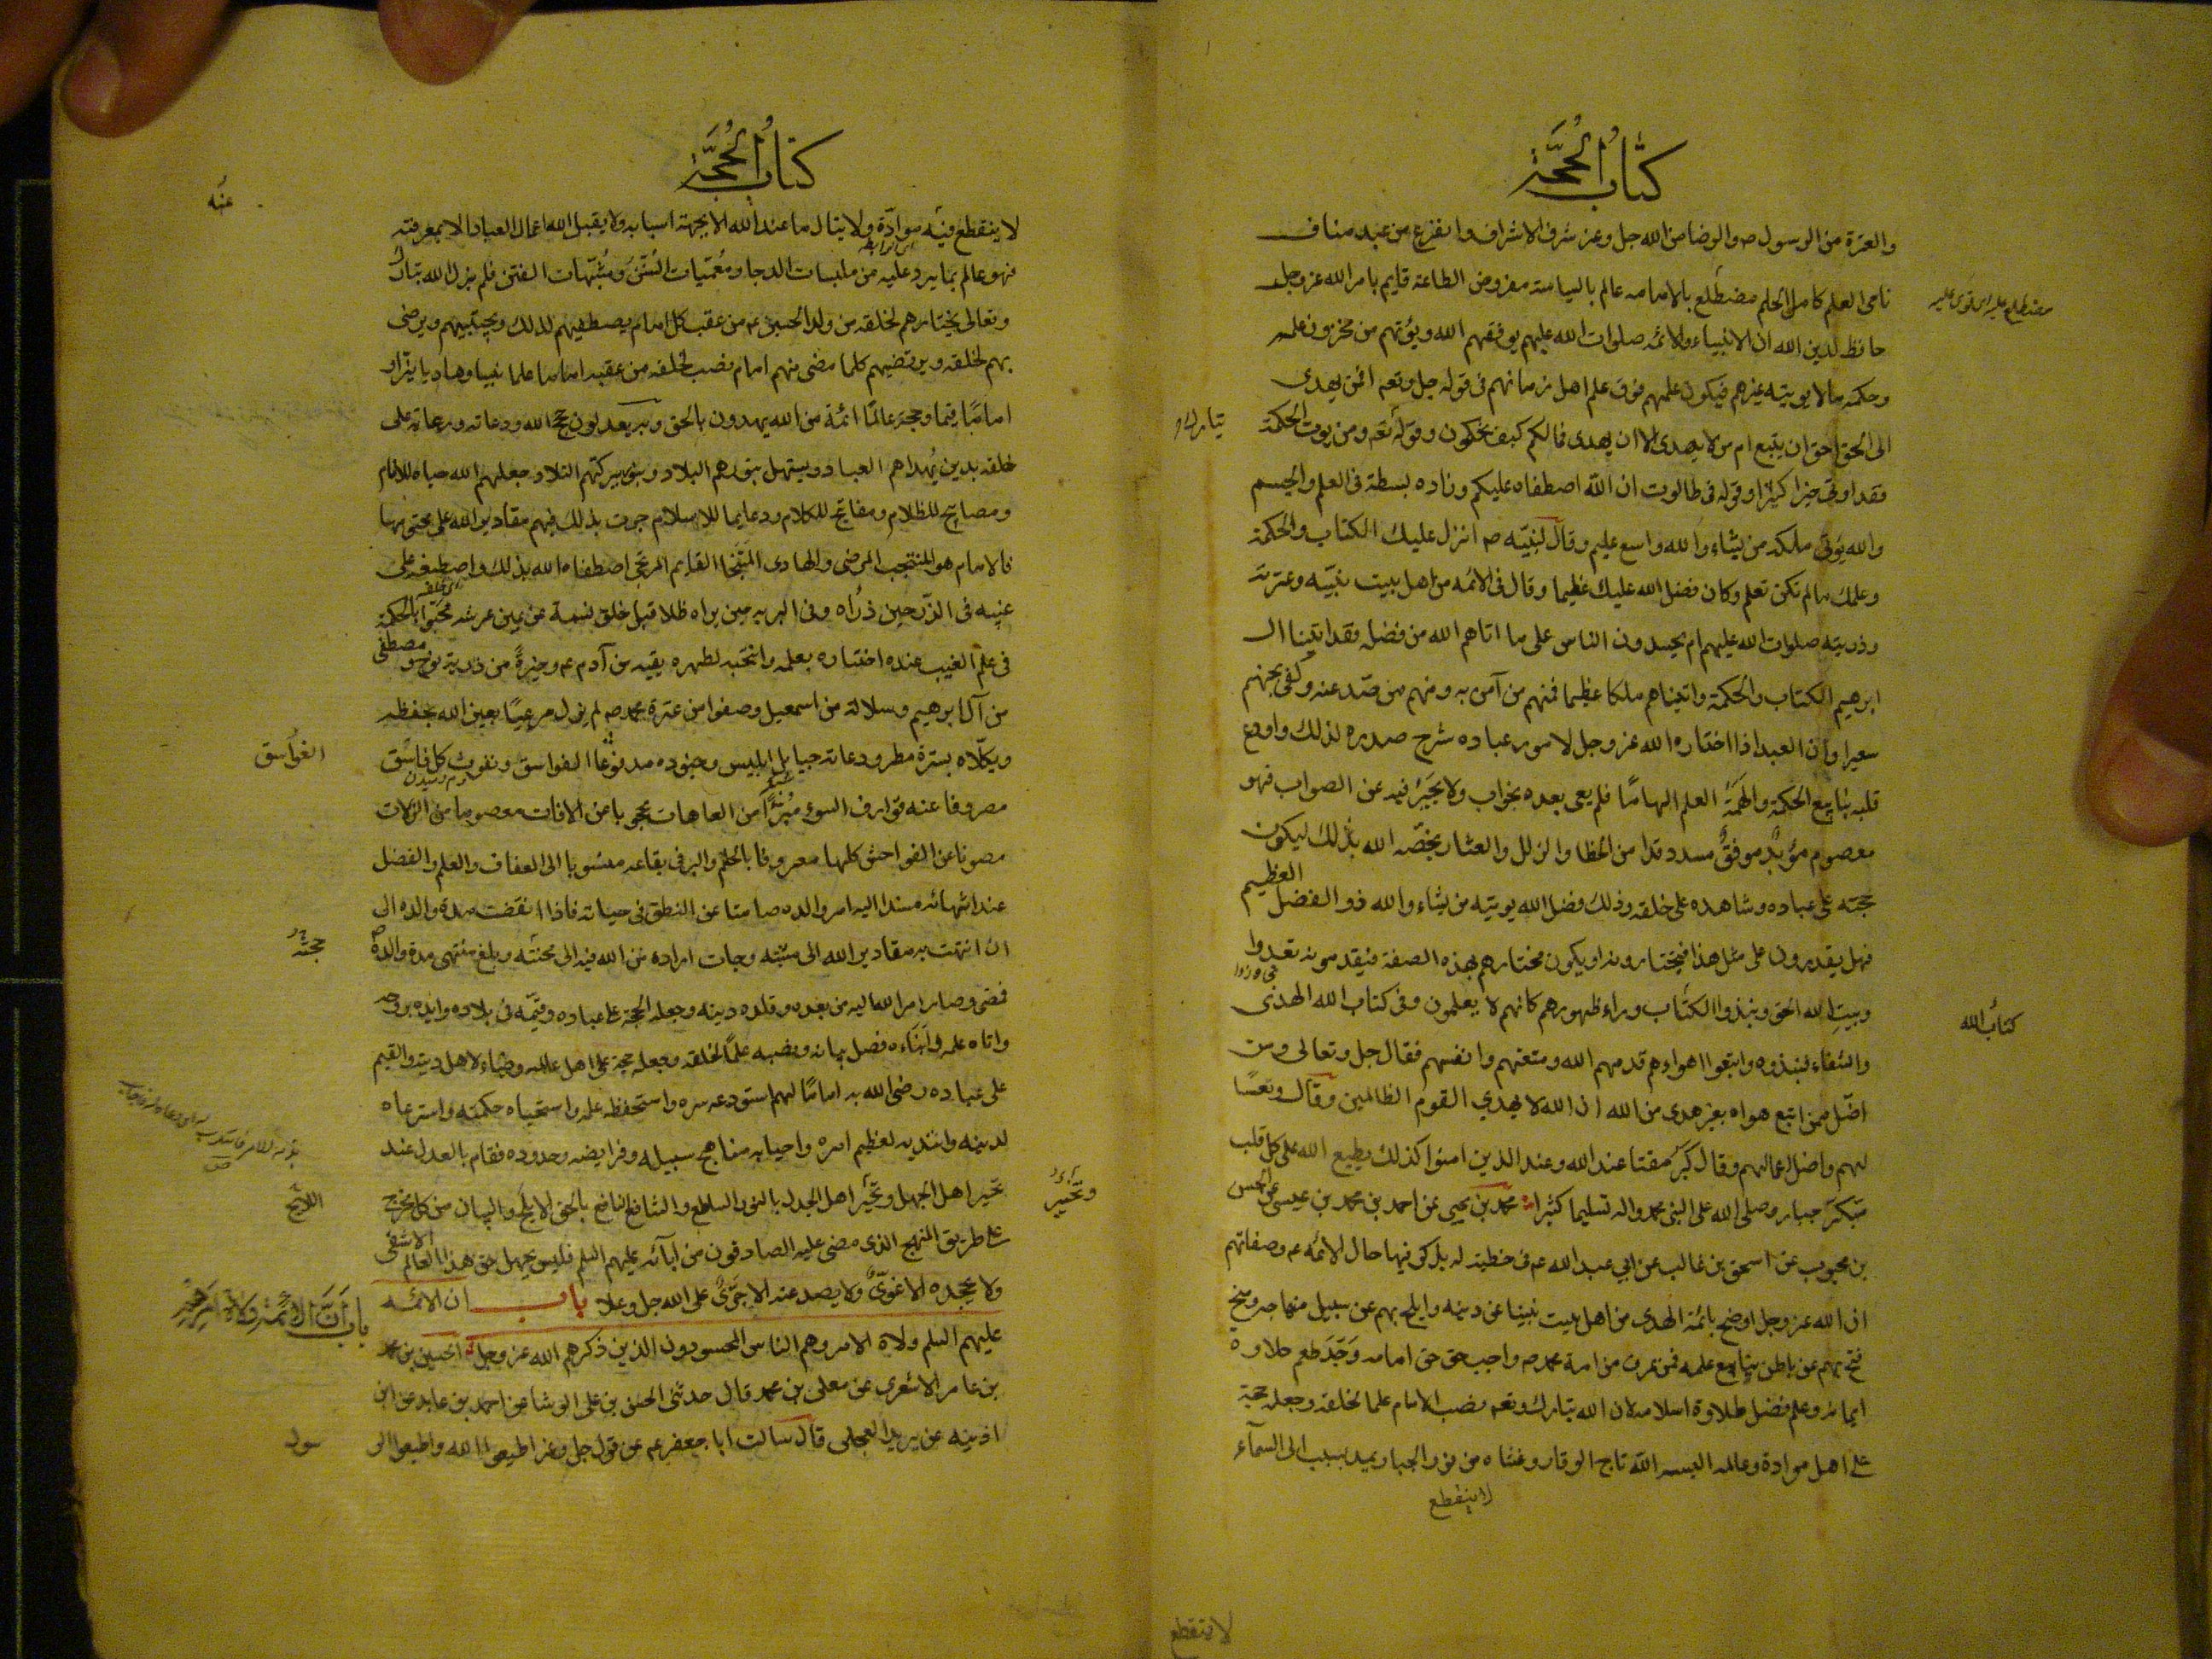 كتاب الحجة
والعترة من الرسول ص والرضا من الله جل وعز شرف الاشراف والفرع من عبد مناف
نامى العلم كامل الحلم مضطلع بالامامه عالم بالسياسة مفروض الطاعة قايم بامر الله عز وجل
حافظ لدين الله ان الانبياء والائمه صلوات الله عليهم يوفقهم الله ويؤتهم من مخزون علمه
وحكمه ما لا يوتيه غيرهم فيكون علمهم فوق علم اهل زمانهم فى قوله جل وتعه افمن يهدى
الى الحق احق ان يتبع ام من لا يهدى الا ان يهدى فمالكم كيف تحكمون وقوله تعه ومن يوت الحكمة
تبارك و
فقد اوتى خيرا كثيرا وقوله فى طالوت ان الله اصطفاه عليكم وزاده بسطة فى العلم والجسم
والله يؤتى ملكه من يشاء والله واسع عليم وقال لنبيه ص انزل عليك الكتاب والحكمة
وعلمك ما لم تكن تعلم وكان فضل الله عليك عظيما وقال فى الائمه من اهل بيت نبيه وعترته
وذريته صلوات الله عليهم ام يحسدون الناس على ما اتاهم الله من فضله فقد اتينا ال
ابرهيم الكتاب والحكمة واتيناهم ملكا عظيما فمنهم من آمن به ومنهم من صد عنه وكفى بجهنم
سعيرا وان العبد اذا اختاره الله عز وجل لامور عباده شرح صدره لذلك واودع
قلبه ينابيع الحكمة والهمه العلم الهاما فلم يعى بعده بجواب ولا يحير فيه عن الصواب فهو
معصوم مؤيد موفق مسدد قد امن الخطا والزلل والعثار يخصه الله بذلك ليكون
حجته على عباده وشاهده على خلقه وذلك فضل الله يوتيه من يشاء والله ذو الفضل العظيم
فهل يقدرون على مثل هذا فيختارونه او يكون مختارهم بهذه الصفة فيقدمونه تعدوا
وبيت الله الحق ونبذوا الكتاب وراء ظهورهم كانهم لا يعلمون وفى كتاب الله الهدى
كتاب الله
والشفاء فنبذوه واتبعوا اهواءهم فذمهم الله ومقتهم وانفسهم فقال جل وتعالى ومن
اضل ممن اتبع هواه بغير هدى من الله ان الله لا يهدي القوم الظالمين وقال وتعسا
لهم واضل اعمالهم وقال كبر مقتا عند الله وعند الذين امنوا كذلك يطبع الله على كل قلب
متكبر جبار وصلى الله على النبى محمد واله تسليما كثيرا محمد بن يحيى عن احمد بن محمد بن عيسى عن الحسن
بن محبوب عن اسحق بن غالب عن ابي عبد الله ع م فى خطبة له يذكر فيها حال الائمه ع م وصفاتهم
ان الله عز وجل اوضح بائمة الهدى من اهل بيت نبينا عن دينه وابلج بهم عن سبيل منهاجه ومنح
فتح بهم عن باطن ينابيع علمه فمن عرف من امة محمد ص واجب حق امامه وجد طعم حلاوة
ايمانه وعلم فضل طلاوة اسلامه لان الله تبارك وتعه نصب الامام علما لخلقه وجعله حجة
على اهل موادة وعالمه البسه الله تاج الوقار وغشاه من نور الجبار يمد بسبب الى السمآء
لا ينقطع
لا ينقطع
كتاب الحجة
لا ينقطع فيه موادة ولا ينال ما عند الله الا بجهة اسبابه ولا يقبل الله اعمال العباد الا بمعرفته
عنه
فهو عالم بما يرد عليه من ملبسات الدجا ومعميات السنن ومشبهات الفتن فلم يزل الله تبارك
وتعالى يختارهم لخلقه من ولد الحسين ع م من عقب كل امام يصطفيهم لذلك ويجتبيهم ويرضى
بهم لخلقه ويرتضيهم كلما مضى منهم امام نصب لخلقه من عقبه اماما علما بينا وهاديا نيرا و
اماما قيما وحجة عالما ائمة من الله يهدون بالحق وبه يعدلون حجج الله ودعاته ورعاته على
خلقه بدين بهداهم العباد ويستهل بنورهم البلاد وينمو ببركتهم التلاد جعلهم الله حياه للانام
ومصابيح للظلام ومفاتيح للكلام ودعايما للاسلام جرت بذلك فيهم مقادير الله على محتومها
فالامام هو المنتجب المرضى والهادى المنتجا القايم المرتجى اصطفاه الله بذلك واصطنعه على
عينه فى الذر حين ذراه وفى البريه حين براه ظلا قبل خلق نسمة عن يمين عرشه محبوا بالحكمة
فى علم الغيب عنده اختاره بعلمه وانتجبه لطهره بقيه من آدم ع م وخيرة من ذرية نوح ومصطفى
من آل ابرهيم وسلالة من اسمعيل وصفوا من عترة محمد ص لم يزل مرعيا بعين الله يحفظه
ويكلاه بستره مطرودا عنه حبايل ابليس وجنوده مدفوعا الفواسق ونفوث كل فاسق
الغواسق
مصروفا عنه قوارف السوء مبرئا من العاهات محجوبا من الافات معصوما من الزلات
مصونا عن الفواحش كلها معروفا بالحلم والبر فى يفاعه منسوبا الى العفاف والعلم والفضل
عند انتهائه مسندا اليه امر والده صامتا عن النطق فى حياته فاذا انقضت مدة والده الى
ان انتهت به مقادير الله الى مشيته وجات اراده من الله فيه الى محبته وبلغ منتهى مدة والده
حجته
فمضى وصار امر الله اليه من بعده وقلده دينه وجعله الحجة على عباده وقيمه فى بلاده وايده بروحه
واتاه علمه وانباءه فضل بيانه ونصبه علما لخلقه وجعله حجة على اهل عالمه وضياء لاهل دينه والقيم
على عباده رضى الله به اماما لهم استودعه سره واستحفظه علمه واستخباه حكمته واسترعاه
لدينه وانتدبه لعظيم امره واحيا به مناهج سبيله وفرايضه وحدوده فقام بالعدل عند
تحير اهل الجهل وتحير اهل الجدل بالنور الساطع والشافع النافع بالحق الابلج والبيان من كل مخرج
وتحيير
اللائح
على طريق المنهج الذى مضى عليه الصادقون من آبائه عليهم السلم فليس يجهل حق هذا العالم الا شقى
ولا يجحده الا غوى ولا يصد عنه الا جرى على الله جل وعلا باب ان الائمه
باب ان الائمة ولاة الامر
عليهم السلم ولاة الامر وهم الناس المحسودون الذين ذكرهم الله عز وجل الحسين بن محمد
بن عامر الاشعرى عن معلى بن محمد قال حدثنى الحسن بن على الوشا عن احمد بن عايد عن ابن
اذينه عن بريد العجلى قال سالت ابا جعفر ع م عن قول جل وعز اطيعوا الله واطيعوا الر
سول